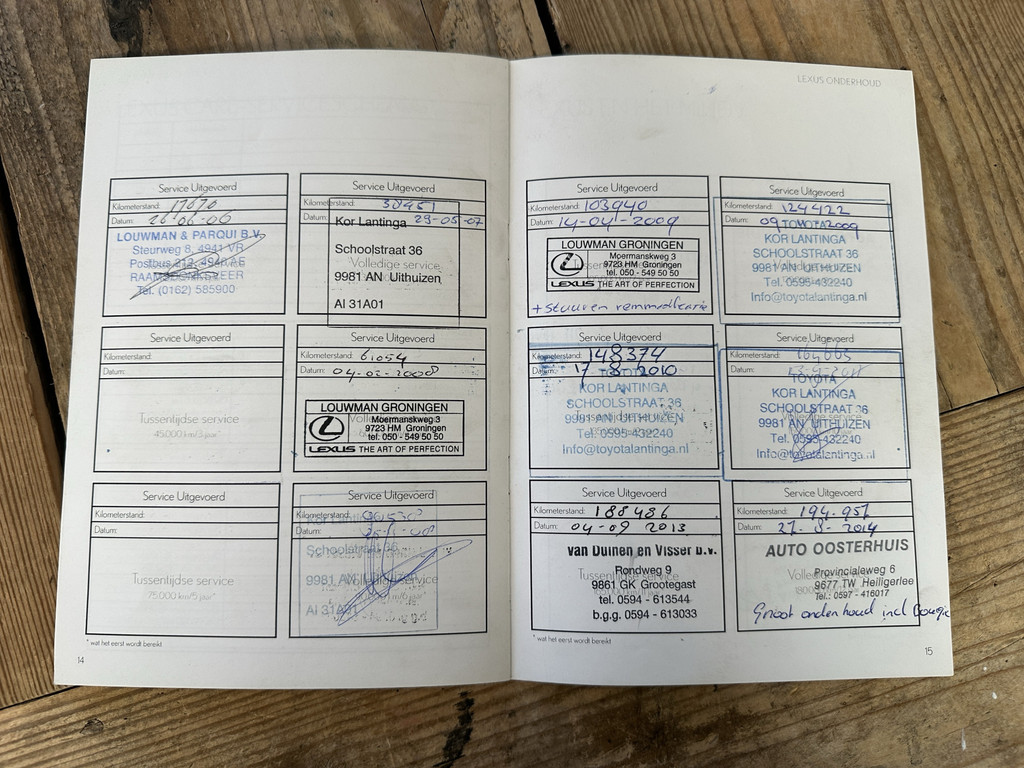 LEXUS ONDERHOUD
Service Uitgevoerd
Kilometerstand: 17670
Datum: 26-06-06
LOUWMAN & PARQUI B.V.
Steurweg 8, 4941 VR
Postbus
RAAMSDONKSVEER
Tel. (0162) 585900
Service Uitgevoerd
Kilometerstand: 38451
Datum: 29-05-07
Kor Lantinga
Schoolstraat 36
Volledige service
9981 AN Uithuizen
AI 31A01
Service Uitgevoerd
Kilometerstand:
Datum:
Tussentijdse service
45.000 km/3 jaar*
Service Uitgevoerd
Kilometerstand: 61054
Datum: 04-02-2008
LOUWMAN GRONINGEN
Moermanskweg 3
9723 HM Groningen
tel. 050 - 549 50 50
LEXUS THE ART OF PERFECTION
Service Uitgevoerd
Kilometerstand:
Datum:
Tussentijdse service
75.000 km/5 jaar*
Service Uitgevoerd
Kilometerstand:
Datum:
Kor
Schoolstraat 36
9981 AN
Volledige service
AI 31A01
* wat het eerst wordt bereikt
14
Service Uitgevoerd
Kilometerstand: 103940
Datum: 14-04-2009
LOUWMAN GRONINGEN
Moermanskweg 3
9723 HM Groningen
tel. 050 - 549 50 50
LEXUS THE ART OF PERFECTION
Service Uitgevoerd
Kilometerstand: 124422
Datum: 2009
TOYOTA
KOR LANTINGA
SCHOOLSTRAAT 36
9981 AN UITHUIZEN
Tel. 0595-432240
Info@toyotalantinga.nl
Service Uitgevoerd
Kilometerstand: 148374
Datum: 17-8-2010
TOYOTA
KOR LANTINGA
SCHOOLSTRAAT 36
9981 AN UITHUIZEN
Tel. 0595-432240
Info@toyotalantinga.nl
Service Uitgevoerd
Kilometerstand:
Datum:
TOYOTA
KOR LANTINGA
SCHOOLSTRAAT 36
9981 AN UITHUIZEN
Tel. 0595-432240
Info@toyotalantinga.nl
Service Uitgevoerd
Kilometerstand: 188486
Datum: 04-09 2013
van Duinen en Visser B.V.
Rondweg 9
Tussentijdse service
9861 GK Grootegast
tel. 0594 - 613544
b.g.g. 0594 - 613033
Service Uitgevoerd
Kilometerstand: 194.951
Datum: 27-8-2014
AUTO OOSTERHUIS
Provincialeweg 6
9677 TW Heiligerlee
Tel.: 0597 - 416017
Groot onderhoud incl Bougie
* wat het eerst wordt bereikt
15